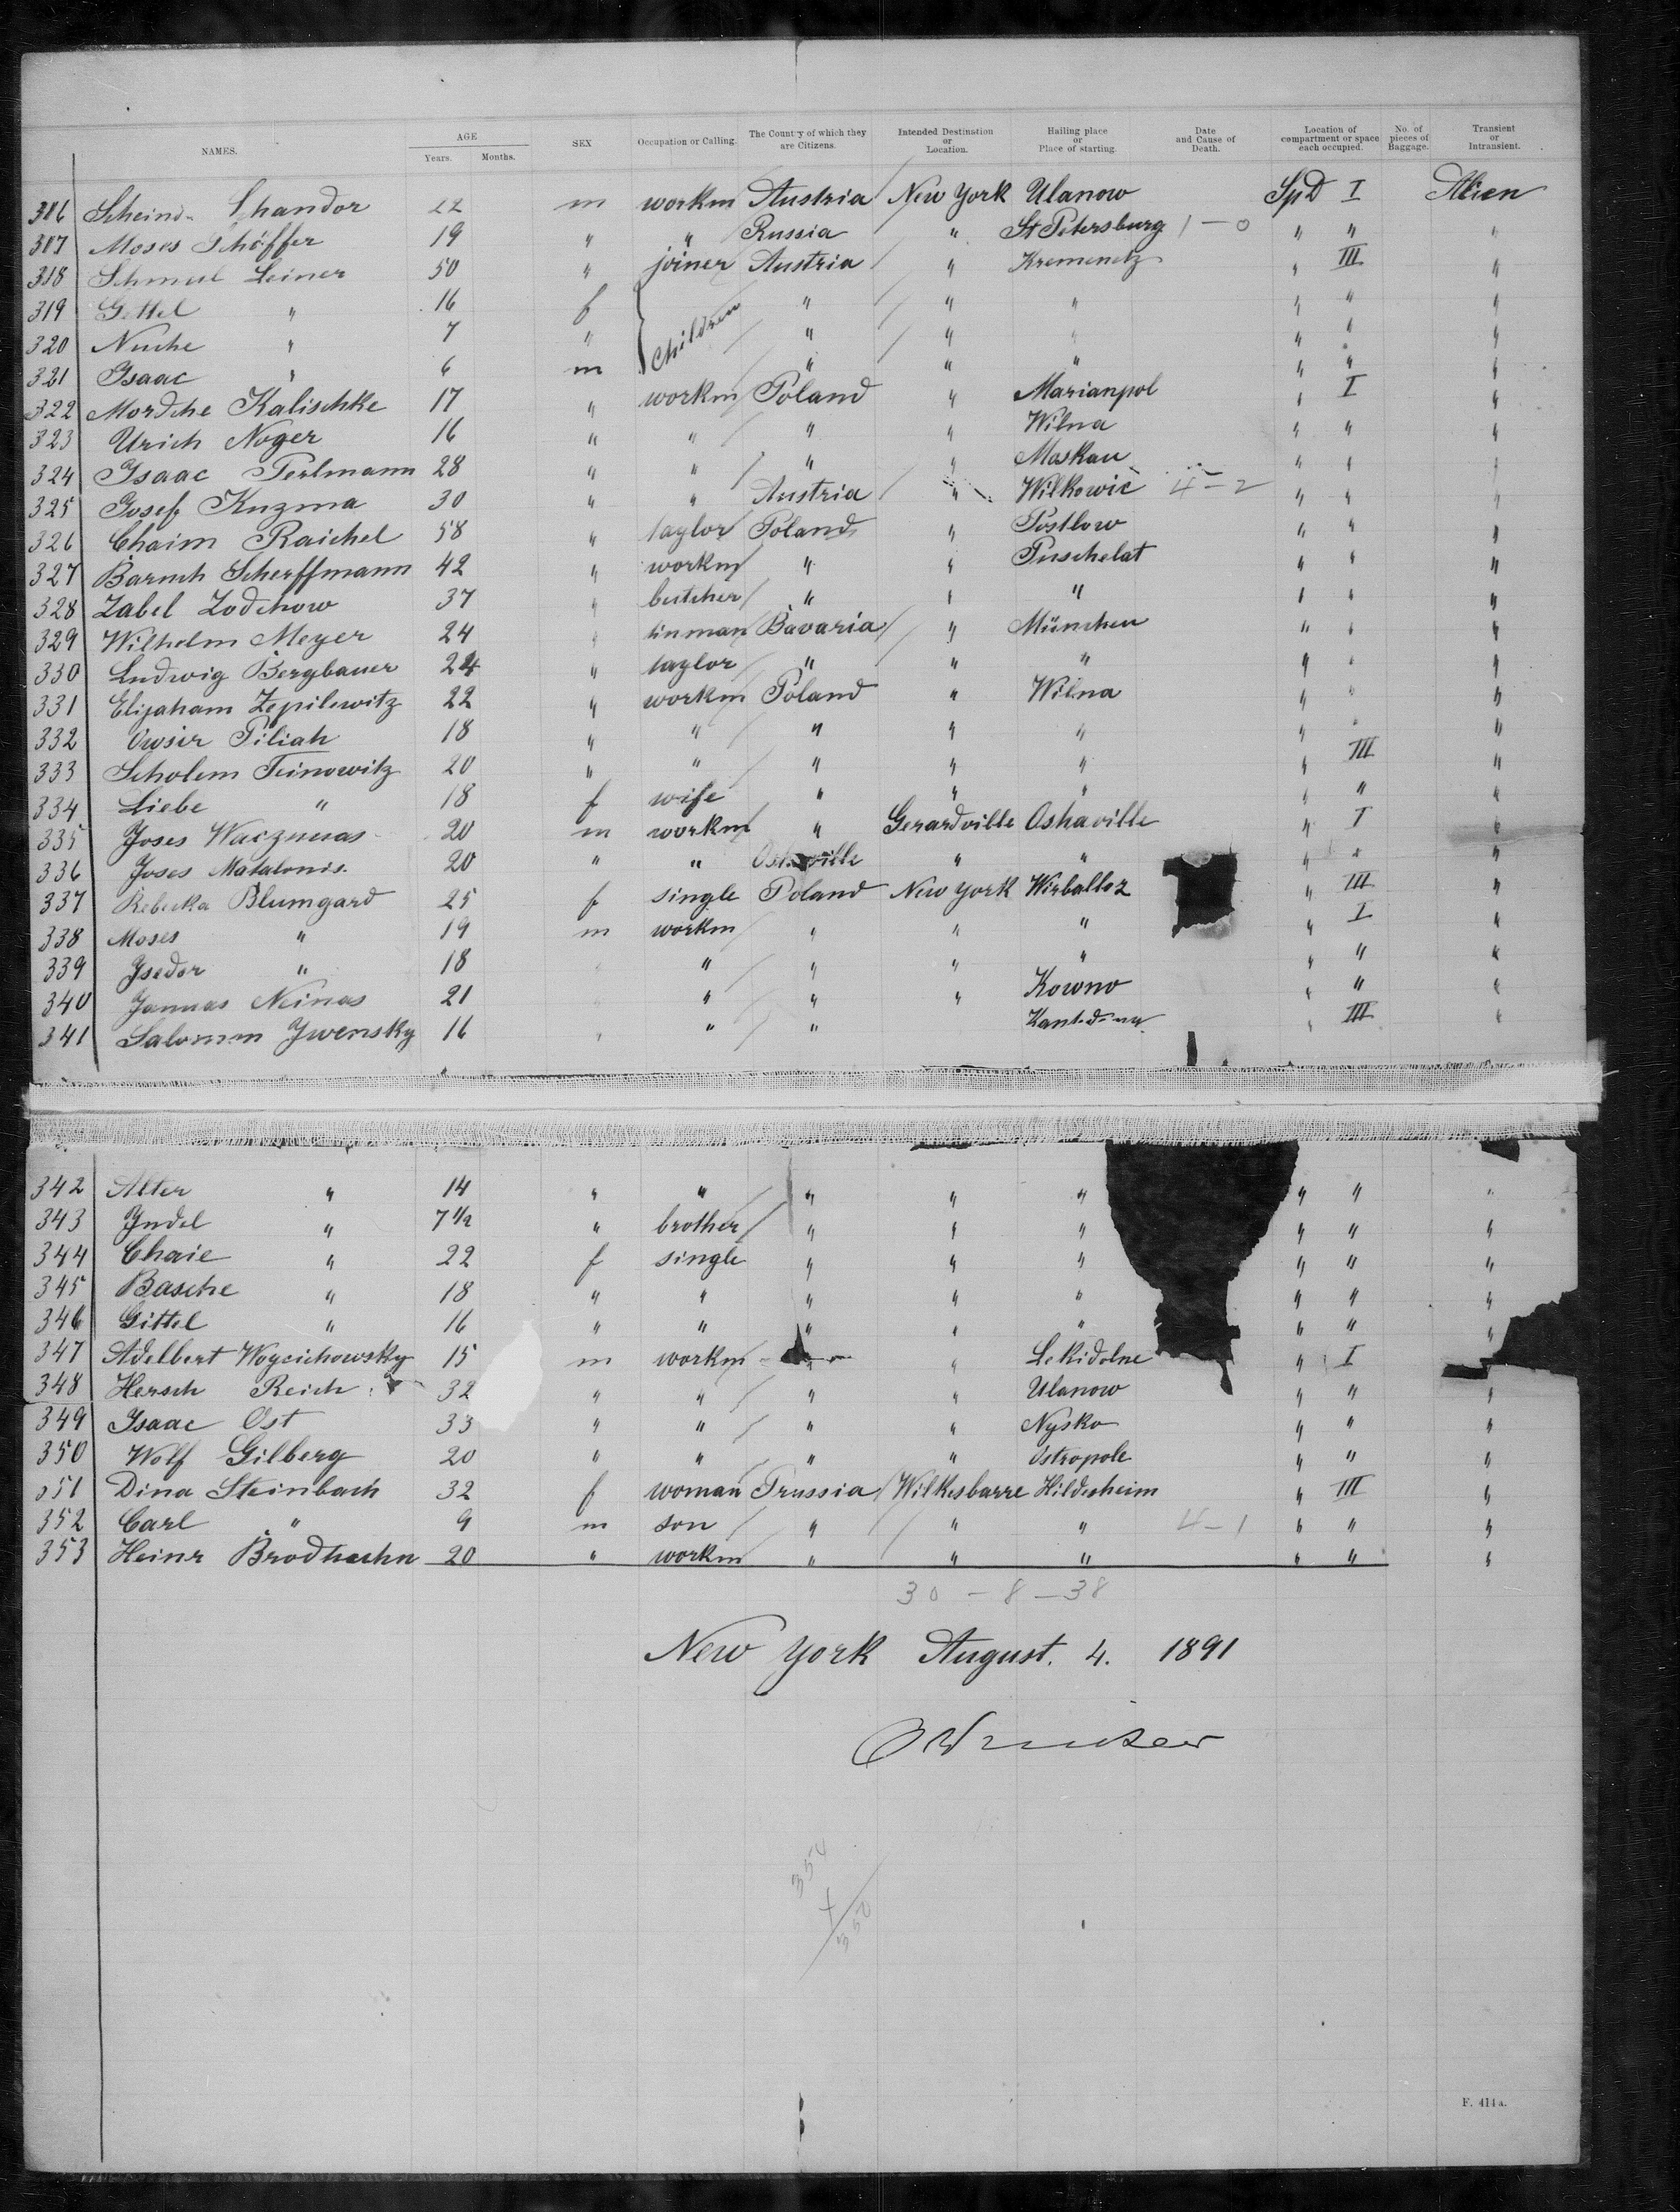 NAMES. AGE Years. Months. SEX Occupation or Calling. The Country of which they are Citizens. Intended Destination or Location. Hailing place or Place of starting. Date and Cause of Death. Location of compartment or space each occupied. No. of pieces of Baggage. Transient or Intransient.
316 Schandor 22 m workm Austria New York Ulanow SpD I Alien
317 Moses Schöffer 19 " " Russia " St Petersburg 1 - 0 " " "
318 Schmul Leiner 50 " joiner Austria " Kremenetz " III "
319 Gettel " 16 f Children " " " " " "
320 Nuche " 7 " " " " " " "
321 Isaac " 6 m " " " " " "
322 Mordche Kalischke 17 " workm Poland " Marianpol " I "
323 Urich Noger 16 " " " " Wilna " " "
324 Isaac Perlmann 28 " " " " Moskau " " "
325 Josef Kuzma 30 " " Austria " Wilkowic 4 - 2 " " "
326 Chaim Raichel 58 " taylor Poland " Postlow " " "
327 Baruch Scherffmann 42 " workm " " Puschelat " " "
328 Zabel Zodchow 37 " butcher " " " " " "
329 Wilhelm Meyer 24 " tinman Bavaria " München " " "
330 Ludwig Bergbauer 24 " taylor " " " " " "
331 Elijaham Zepilewitz 22 " workm Poland " Wilna " " "
332 Owsir Piliah 18 " " " " " " " "
333 Scholem Feinowitz 20 " " " " " " III "
334 Liebe " 18 f wife " " " " " "
335 Joses Waczunas 20 m workm " Gerardville Oshaville " I "
336 Joses Matalonis. 20 " " " " " " "
337 Rebecka Blumgard 25 f single Poland New York Wirballoz " III "
338 Moses " 19 m workm " " " " I "
339 Ysedor " 18 " " " " " " " "
340 Jannas Neinas 21 " " " " Kowno " " "
341 Salomon Ywensky 16 " " " " III "
342 Alter " 14 " " " " " " " "
343 Yudel " 7 1/2 " brother " " " " " "
344 Chaie " 22 f single " " " " " "
345 Basche " 18 " " " " " " " "
346 Gittel " 16 " " " " " " " "
347 Adelbert Woycichowsky 15 m workm " " Lekidolne " I
348 Hersch Reich 32 " " " " Ulanow " " "
349 Isaac Ost 33 " " " " Nysko " " "
350 Wolf Gilberg 20 " " " " Ostropole " " "
351 Dina Steinbach 32 f woman Prussia Wilkesbarre Hildesheim " III "
352 Carl " 9 m son " " " 4 - 1 " " "
353 Heinr Brodhuhn 20 " workm " " " " " "
30 - 8 - 38
New York August. 4. 1891
354
350
F. 414a.